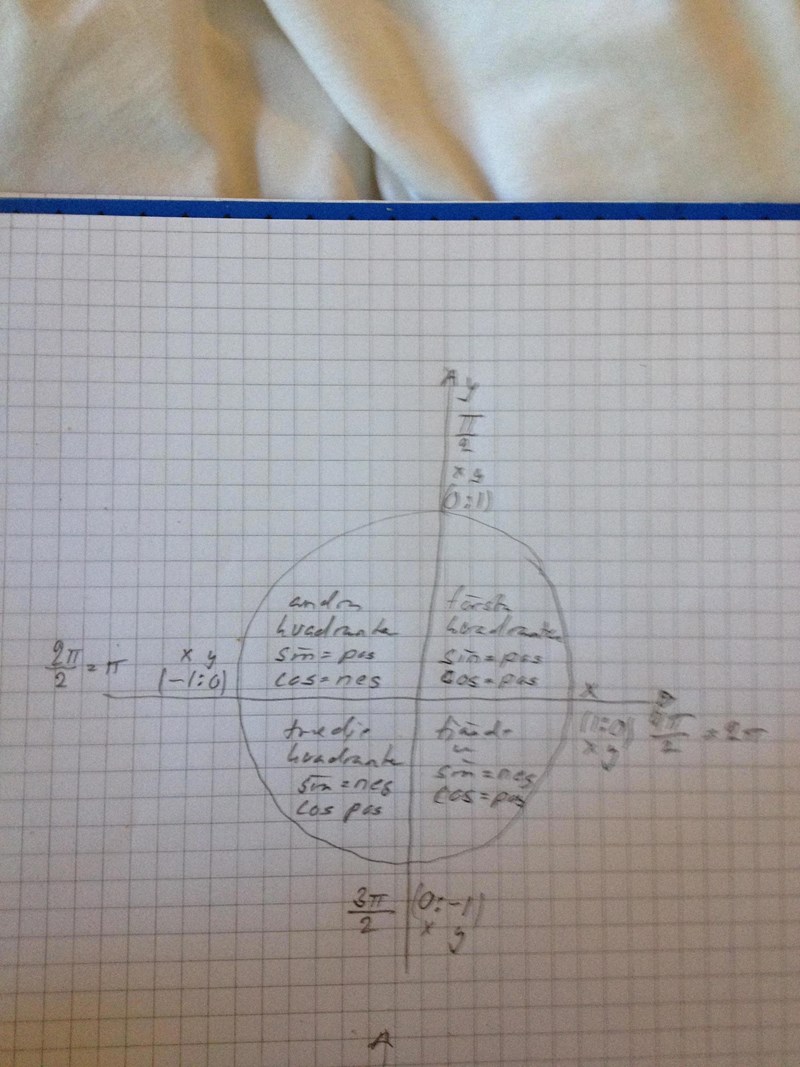 y
π/2
x y
(0:1)
andra
kvadranten
sin = pos
cos = neg
första
kvadranten
sin = pos
cos = pos
2π/2 = π
x y
(-1:0)
x
(1:0)
x y
4π/2 = 2π
tredje
kvadranten
sin = neg
cos pos
fjärde
sin = neg
cos = pos
3π/2
(0:-1)
x y